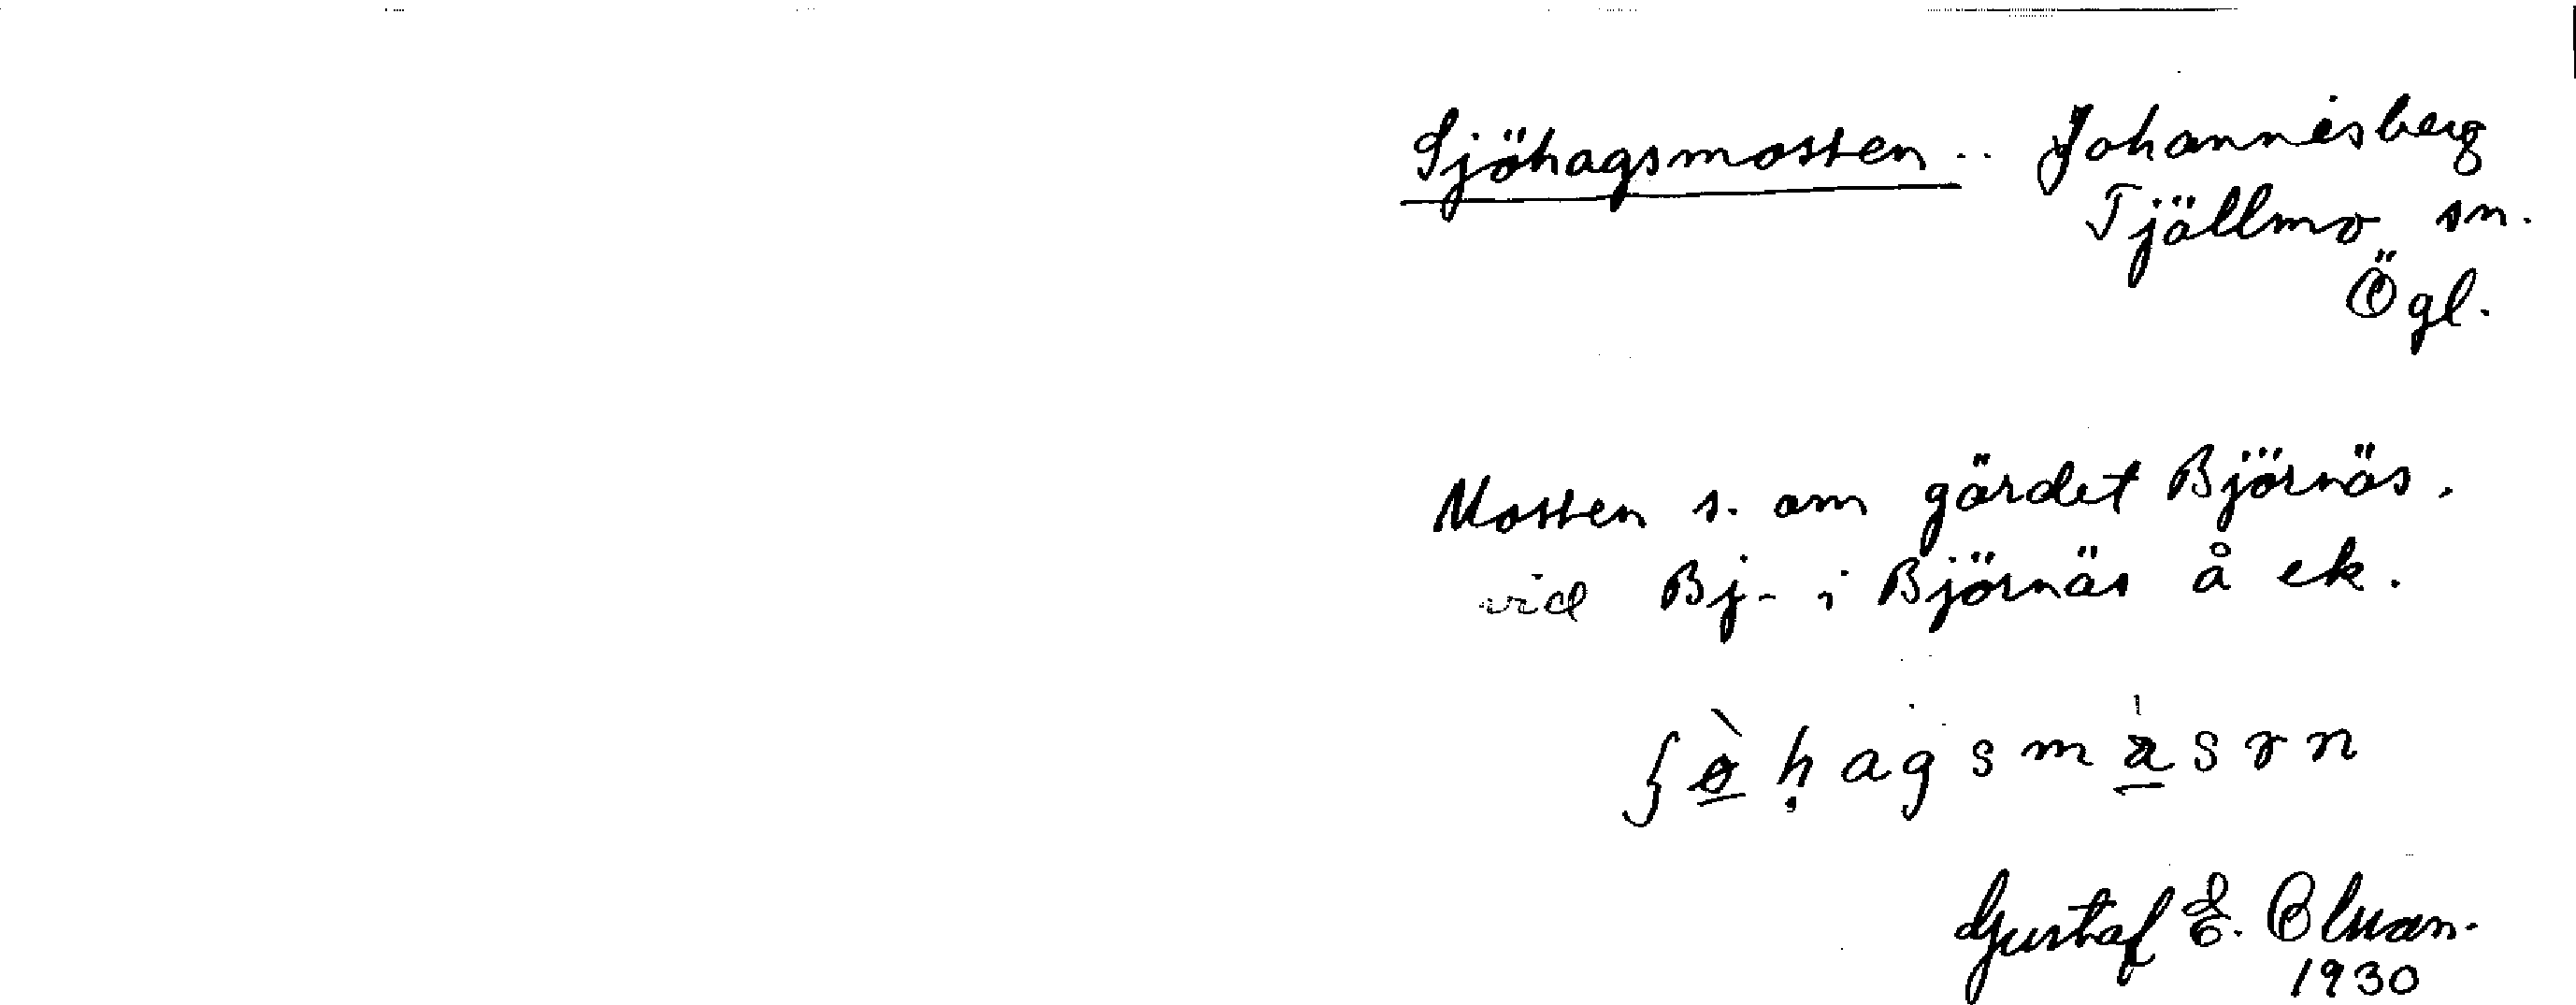 Sjöhagsmossen.. Johannesberg
Tjällmo sn.
Ögl.
Mossen s. om gärdet Björnäs.
vid Bj- i Björnäs å ek.
Gustaf E. Olsson.
1930